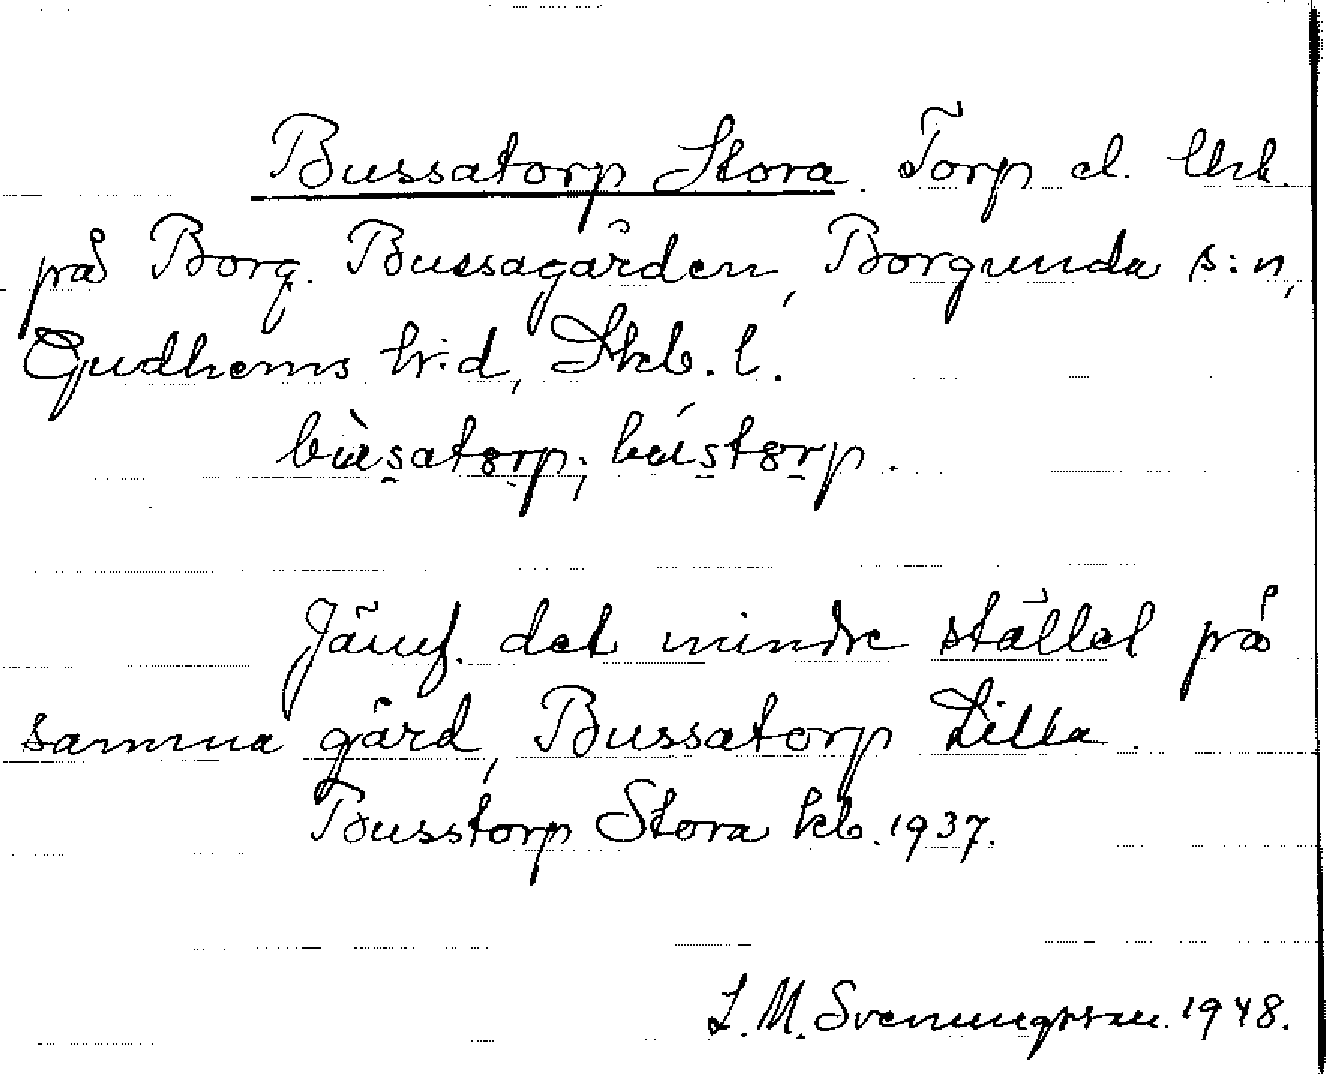 Bussatorp Stora. Torp el. Utst.
på Borg. Bussagården, Borgunda s:n,
Gudhems h:d, Skb. l.
bùsatørp; bústørp.
Jämf. det mindre stället på
samma gård, Bussatorp Lilla.
Busstorp Stora kb. 1937.
L. M. Svenungsson. 1948.